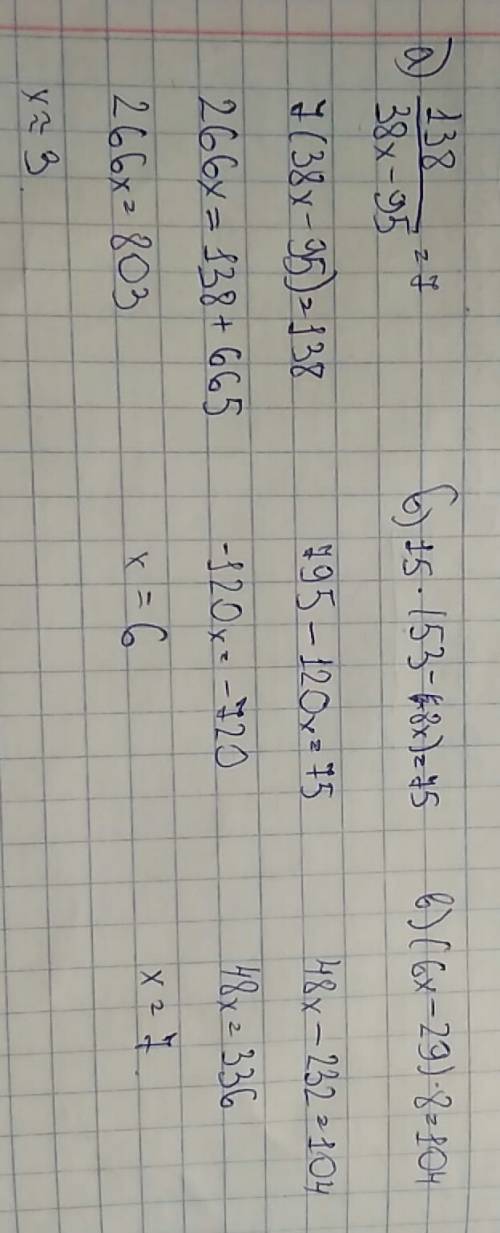 а) 138/(38x-95) = 7
7(38x-95)=138
266x=138+665
266x=803
x≈3
б) 15·(53-8x)=75
795-120x=75
-120x=-720
x=6
в) (6x-29)·8=104
48x-232=104
48x=336
x=7